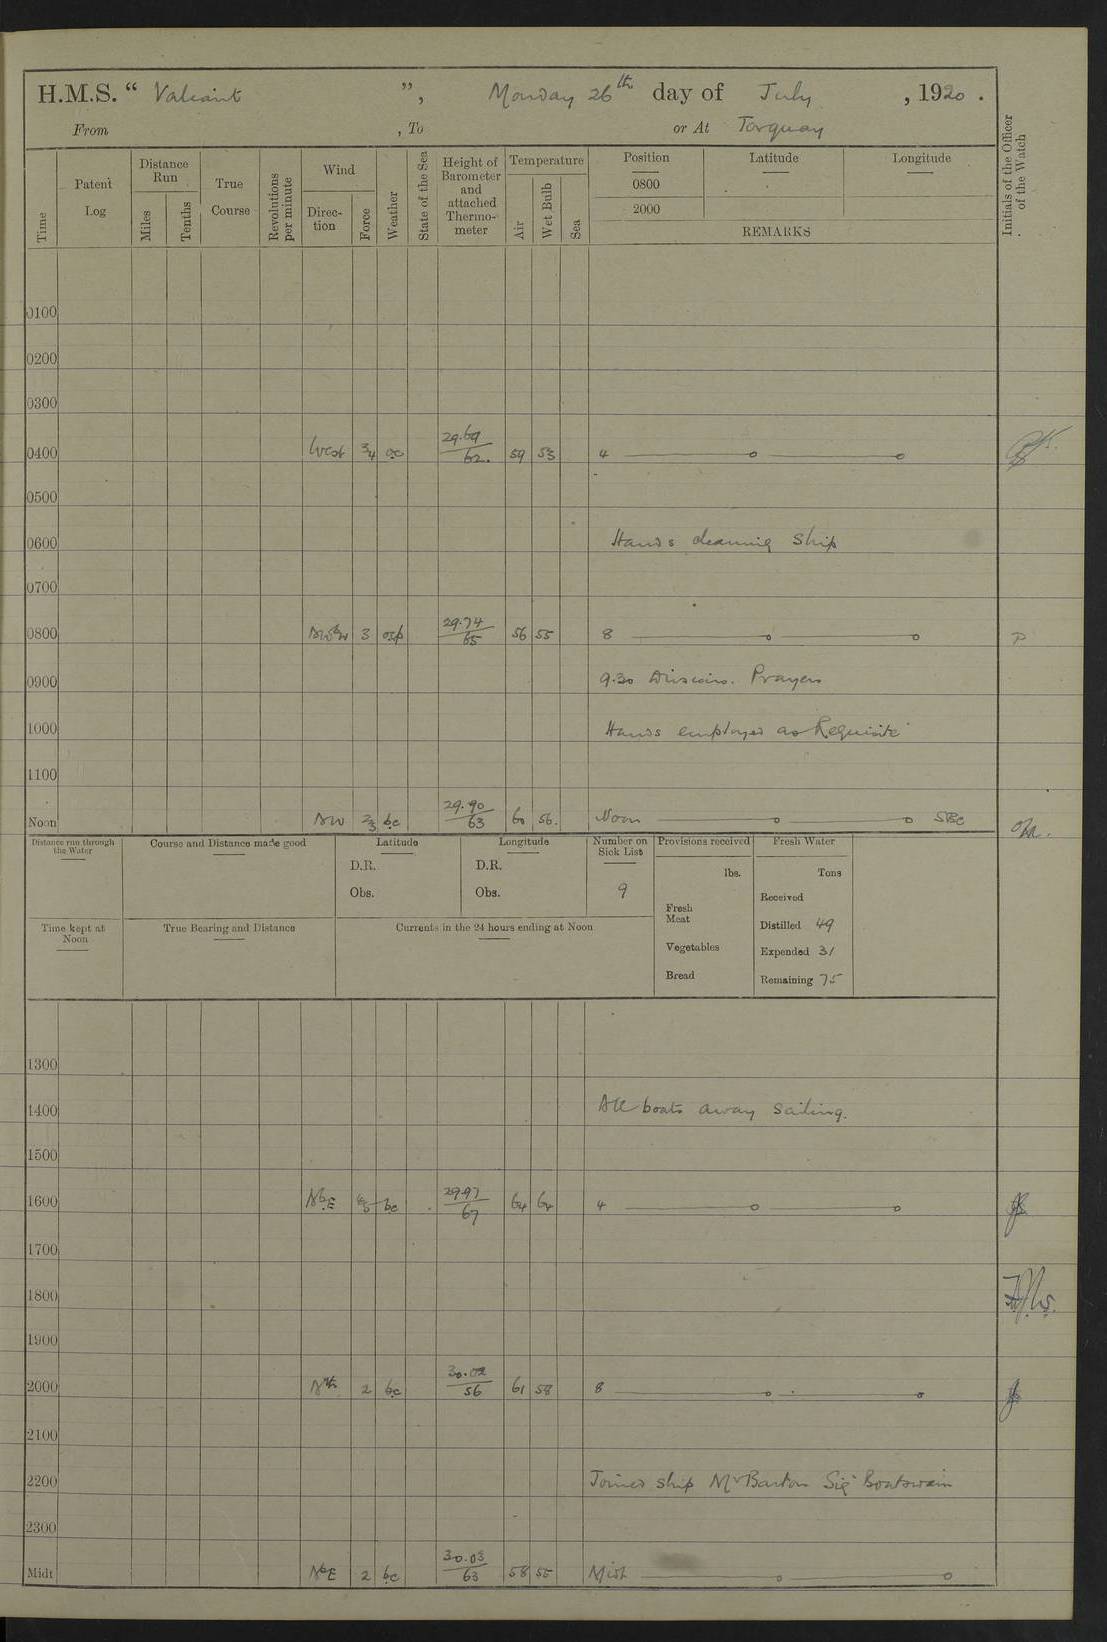 H.M.S. “ Valiant ”, Monday 26th day of July , 1920 .
From , To or At Torquay
Time
Patent Log
Distance Run
Miles
Tenths
True Course
Revolutions per minute
Wind
Direc-tion
Force
Weather
State of the Sea
Height of Barometer and attached Thermo-meter
Temperature
Air
Wet Bulb
Sea
Position
Latitude
Longitude
0800
2000
REMARKS
Initials of the Officer of the Watch
0100
0200
0300
0400 West 3/4 oc 29.69/62. 59 53 4
0500
0600 Hands cleaning ship
0700
0800 SWbW 3 osp 29.74/65 56 55 8
0900 9.30 Divisions. Prayers
1000 Hands employed as Requisite
1100
Noon SW 2/3 bc 29.90/63 60 56. Noon
Distance run through the Water
Course and Distance made good
Latitude
D.R.
Obs.
Longitude
D.R.
Obs.
Number on Sick List
9
Provisions received
lbs.
Fresh Meat
Vegetables
Bread
Fresh Water
Tons
Received
Distilled 49
Expended 31
Remaining 75
Time kept at Noon
True Bearing and Distance
Currents in the 24 hours ending at Noon
1300
1400 All boats away sailing.
1500
1600 NbE bc 29.97/67 64 64 4
1700
1800
1900
2000 Nth 2 bc 30.02/56 61 58 8
2100
2200 Joined ship Mr Barton Sig Boatswain
2300
Midt NbE 2 bc 30.03/63 58 55 Midt